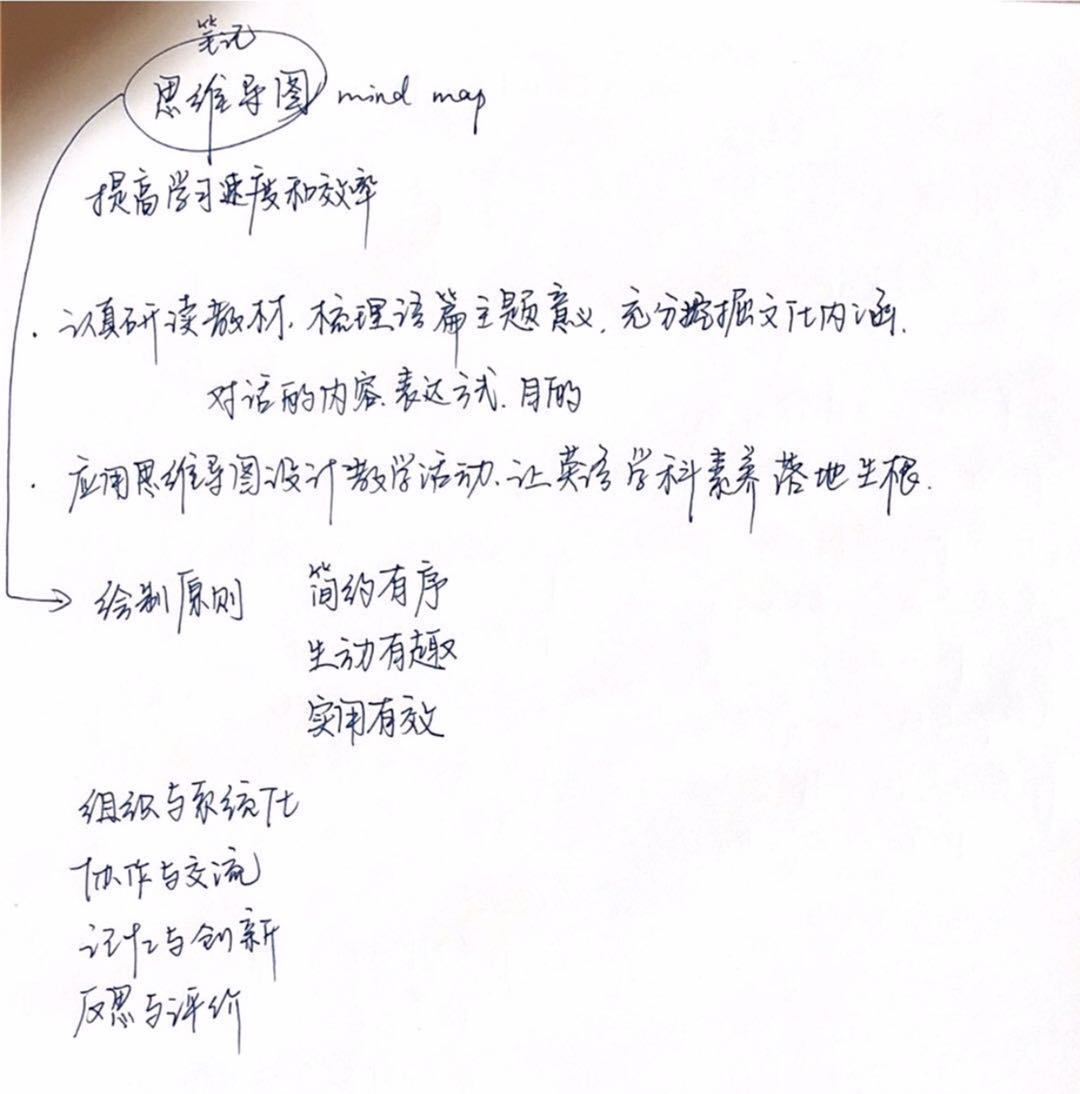 笔记
思维导图 mind map
提高学习速度和效率
· 认真研读教材、梳理语篇主题意义,充分挖掘文化内涵.
对话的内容、表达方式、目的
· 应用思维导图设计教学活动、让英语学科素养落地生根.
绘制原则 简约有序
生动有趣
实用有效
组织与系统化
协作与交流
记忆与创新
反思与评价